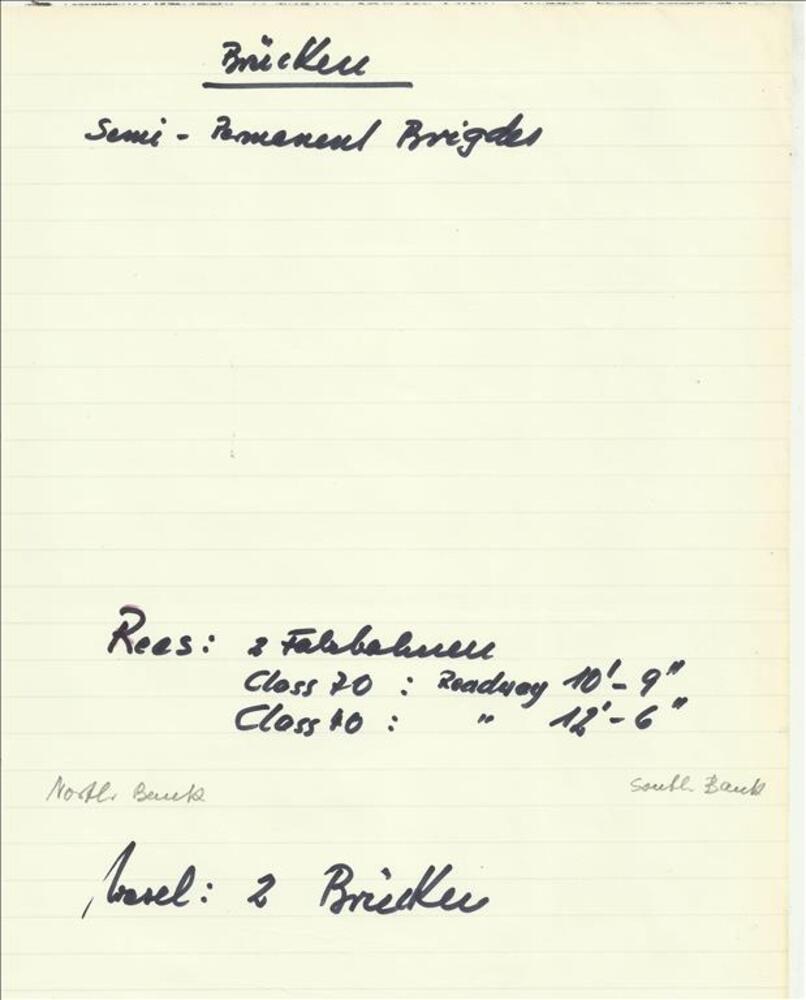 Brücken
Semi - Permanent Brigdes
Rees: 2 Fahrbahnen
Class 70 : Roadway 10' - 9"
Class 40 : " 12' - 6"
North Bank South Bank
Wesel: 2 Brücken